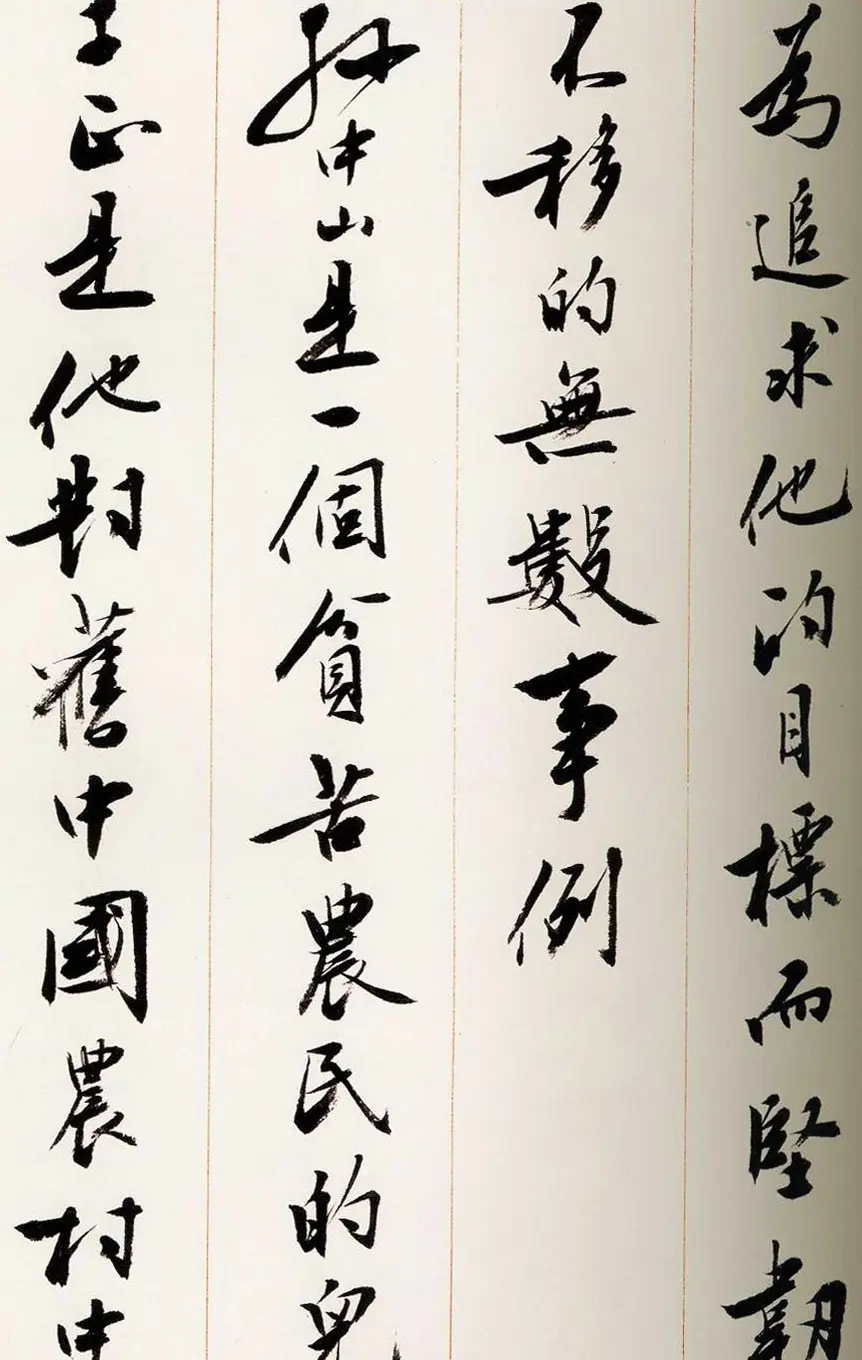 為追求他的目標而堅韌
不移的無數事例
孫中山是一個貧苦農民的兒
子正是他對舊中國農村中